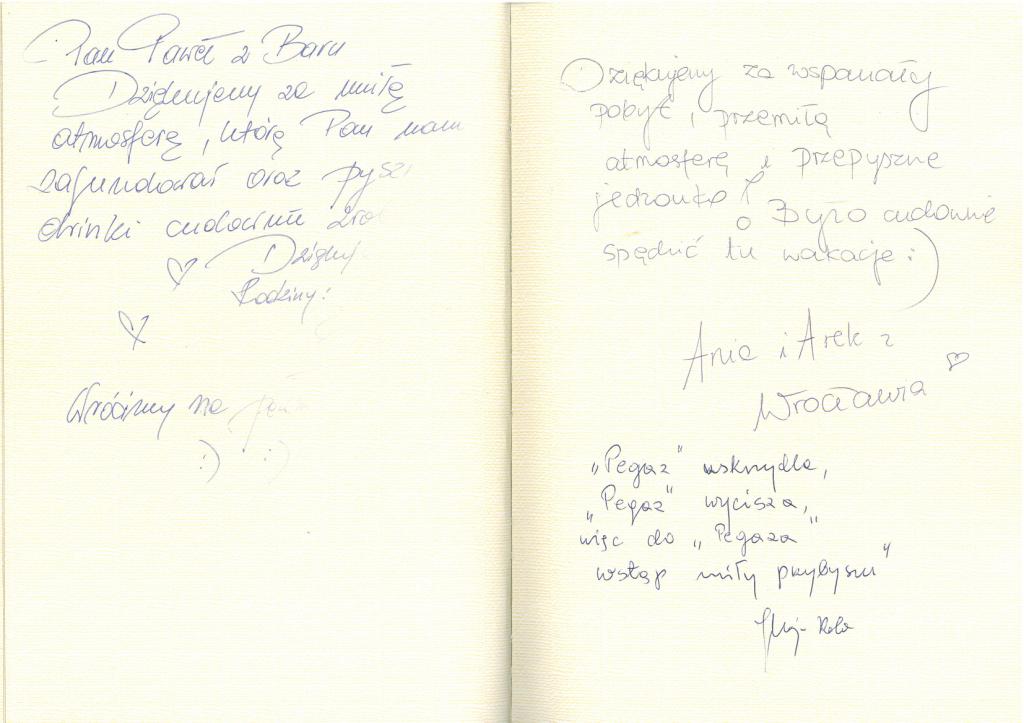 Pan Paweł z Baru
Dziękujemy za miłą
atmosferę, którą Pan nam
zafundował oraz
drinki cudownie
Rodziny:
Wrócimy na
:) :)
Dziękujemy za wspaniały
pobyt, przemiłą
atmosferę i przepyszne
jedzonko!
Było cudownie
spędzić tu wakacje :)
Ania i Arek z
Wrocławia
„Pegaz" uskrzydla,
„Pegaz" wycisza,
więc do „Pegaza"
wstąp miły przybyszu"